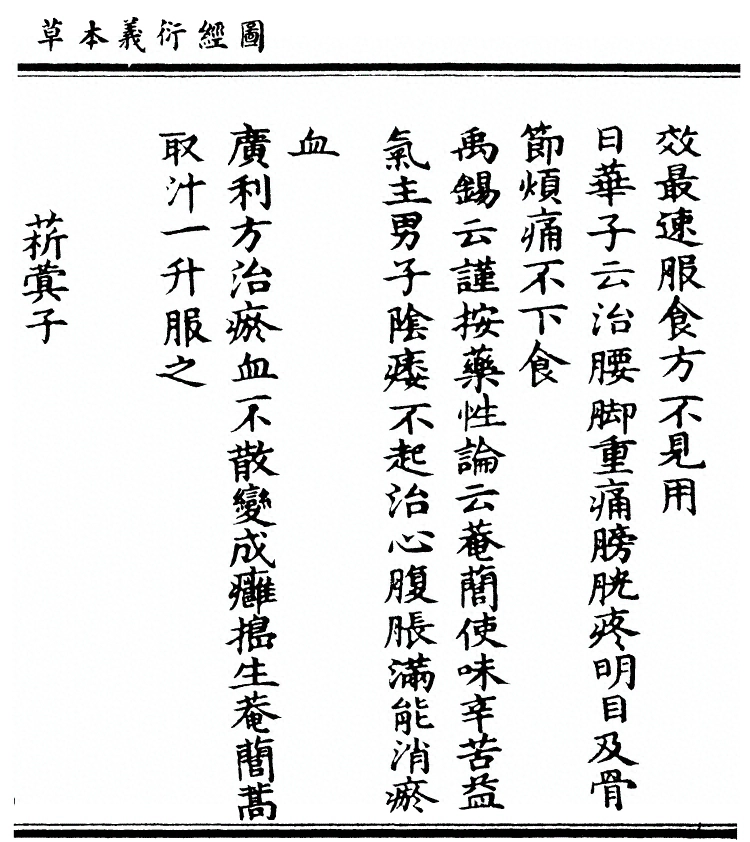 圖經衍義本草
效最速服食方不見用
日華子云治腰脚重痛膀胱疼明目及骨
節煩痛不下食
禹錫云謹按藥性論云菴䕡使味辛苦益
氣主男子陰痿不起治心腹脹滿能消瘀
血
廣利方治瘀血不散變成癰搗生菴䕡蒿
取汁一升服之
菥蓂子